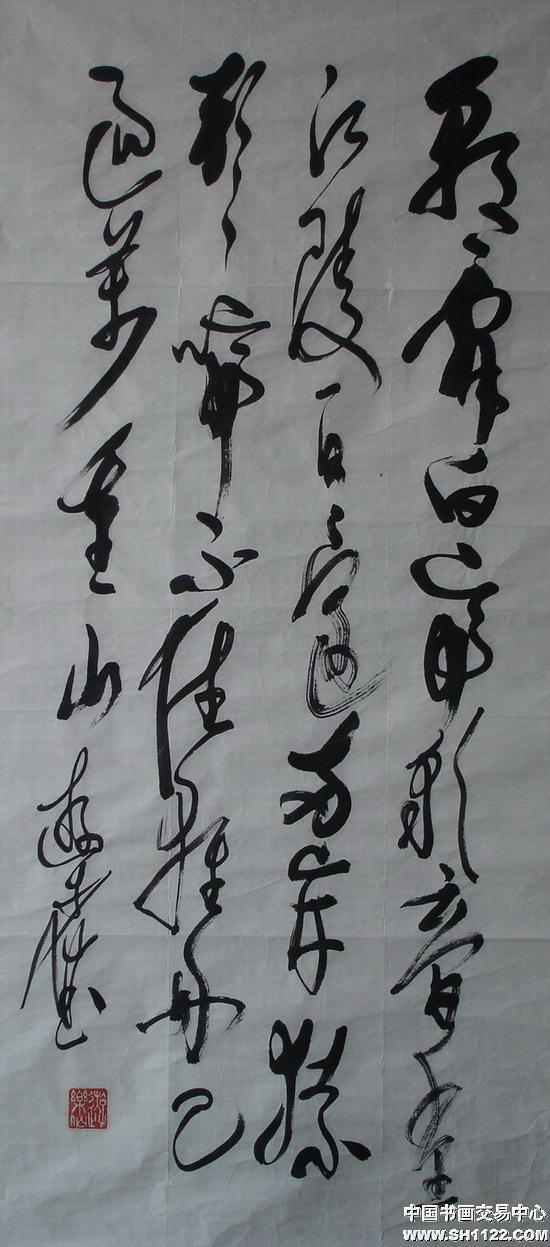 朝辭白帝彩云間千里
江陵一日還兩岸猿
聲啼不住輕舟已
過萬重山
中国书画交易中心
www.SH1122.COM